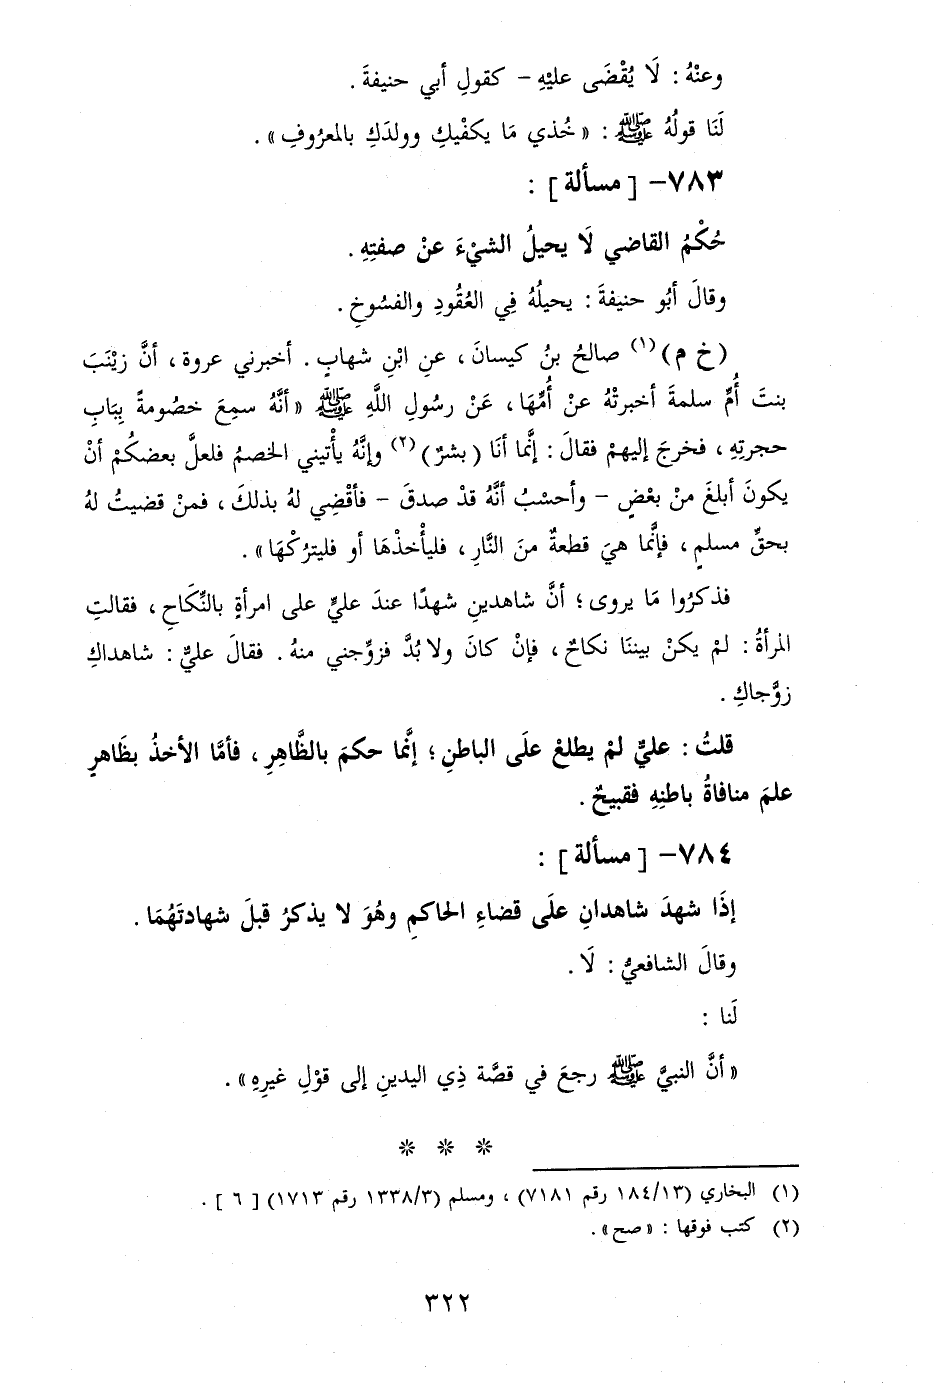 وعنْهُ : لَا يُقْضَى عليْهِ – كقولِ أبي حنيفةَ .
لَنَا قولُهُ ﷺ : « خُذي مَا يكفْيكِ وولدَكِ بالمعرُوفِ» .
٧٨٣– [ مسألة ] :
حُكْمُ القاضي لَا يحيلُ الشيْءَ عنْ صفتِهِ .
وقالَ أبُو حنيفةَ : يحيلُهُ فِي العُقُودِ والفسُوخِ .
(خ م)(١) صالحُ بنُ كيسانَ ، عنِ ابْنِ شهابٍ . أخبرني عروة ، أنَّ زيْنَبَ
بنتَ أُمِّ سلمةَ أخبرتْهُ عنْ أُمِّهَا ، عَنْ رسُولِ اللَّهِ ﷺ « أنَّهُ سمِعَ خصُومةً بِبَابِ
حجرتِهِ ، فخرجَ إليهمْ فقالَ : إنَّما أنَا (بشرٌ)(٢) وإنَّهُ يأْتيني الخصمُ فلعلَّ بعضكُمْ أنْ
يكونَ أبلغَ منْ بعْضٍ – وأحسْبُ أنَّهُ قدْ صدقَ – فأقْضِي لهُ بذلكَ ، فمنْ قضيتُ لهُ
بحقِّ مسلمٍ ، فإنَّما هيَ قطعةٌ منَ النَّارِ ، فليأْخذْهَا أو فليترُكْهَا» .
فذكرُوا مَا يروى ؛ أنَّ شاهدينِ شهدًا عندَ عليٍّ على امرأةٍ بالنِّكَاحِ ، فقالتِ
المرأةُ : لمْ يكنْ بيننَا نكاحٌ ، فإنْ كانَ ولا بُدَّ فزوِّجني منهُ . فقالَ عليٌّ : شاهداكِ
زوَّجاكِ .
قلتُ : عليٌّ لمْ يطلعْ علَى الباطنِ ؛ إنَّما حكمَ بالظَّاهِرِ ، فأمَّا الأخذُ بظَاهرٍ
علمَ منافاةُ باطنِهِ فقبيحٌ .
٧٨٤– [ مسألة ] :
إذَا شهدَ شاهدانِ علَى قضاءِ الحاكمِ وهُوَ لا يذكرُ قبلَ شهادتَهُمَا .
وقالَ الشافعيُّ : لَا .
لَنا :
« أنَّ النبيَّ ﷺ رجعَ في قصَّة ذِي اليدينِ إلى قوْلِ غيرِهِ» .
* * *
(١) البخاري (١٣/ ١٨٤ رقم ٧١٨١) ، ومسلم (٣/ ١٣٣٨ رقم ١٧١٣) [ ٦ ] .
(٢) كتب فوقها : « صح» .
٣٢٢